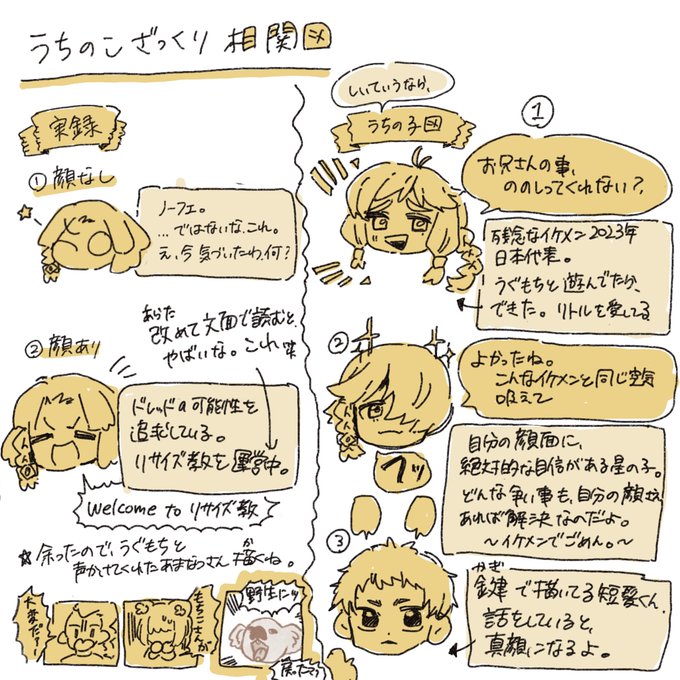 うちのこ ざっくり 相関図
実録
①顔なし
ノーフェ。
…ではないな、これ。
え、今気づいたわ、何?
あらた
改めて文面で読むと、
やばいな。これ 笑
②顔あり
ドレッドの可能性を
追求している。
リサイズ教を運営中。
Welcome to リサイズ教
☆余ったので、うぐもちと
声かけてくれたあまなつさん描くね。
か
もちこさんが
野生にッ
しいていうなら、
うちの子図
①
お兄さんの事、
ののしってくれない?
残念なイケメン2023年
日本代表。
うぐもちと遊んでたら、
できた。リトルを愛してる
②
よかったね。
こんなイケメンと同じ空気
吸えて
フッ
自分の顔面に、
絶対的な自信がある星の子。
どんな争い事も、自分の顔さえ
あれば解決なのだよ。
～イケメンでごめん。～
③
かぎ
で描いてる短髪くん。
話をしていると、
真顔になるよ。